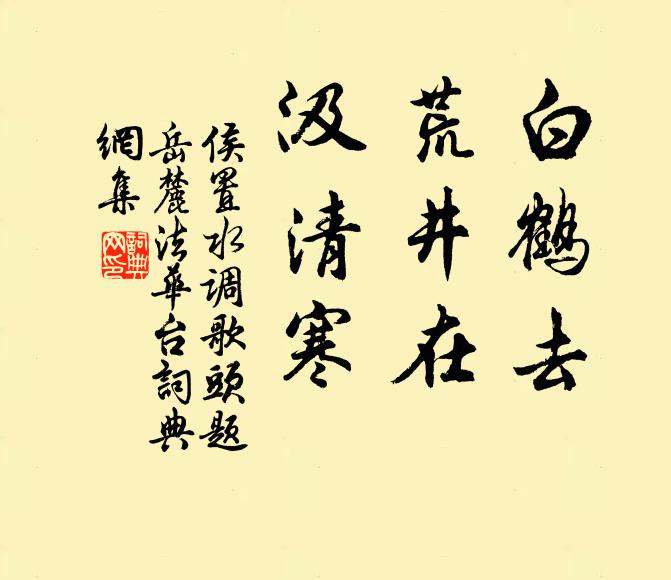 白鹤去
荒井在
汲清寒
侯置水调歌頭题
岳麓法華台詞典
網集
詞典
网印